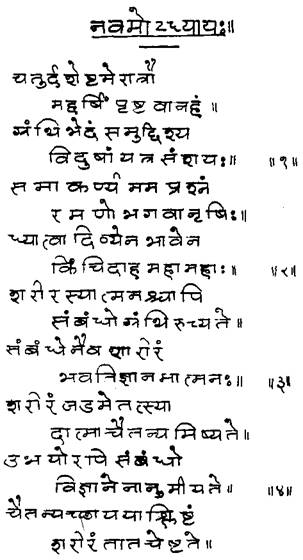 नवमोऽध्यायः॥
चतुर्दशेष्टमे रात्रौ
महर्षिं पृष्टवानहं॥
ग्रंथिभेदं समुद्दिश्य
विदुषां यत्र संशयः॥ ॥१॥
तमाकर्ण्य मम प्रश्नं
रमणो भगवानृषिः॥
ध्यात्वा दिव्येन भावेन
किंचिदाह महामहाः॥ ॥२॥
शरीरस्यात्मनश्चापि
संबंधो ग्रंथिरुच्यते॥
संबंधेनैव शारीरं
भवति ज्ञानमात्मनः॥ ॥३॥
शरीरं जडमेतत्स्या
दात्मा चैतन्यमिष्यते॥
उभयोरपि संबंधो
विज्ञानेनानुमीयते॥ ॥४॥
चैतन्यच्छाययाश्लिष्टं
शरीरं तात चेष्टते॥